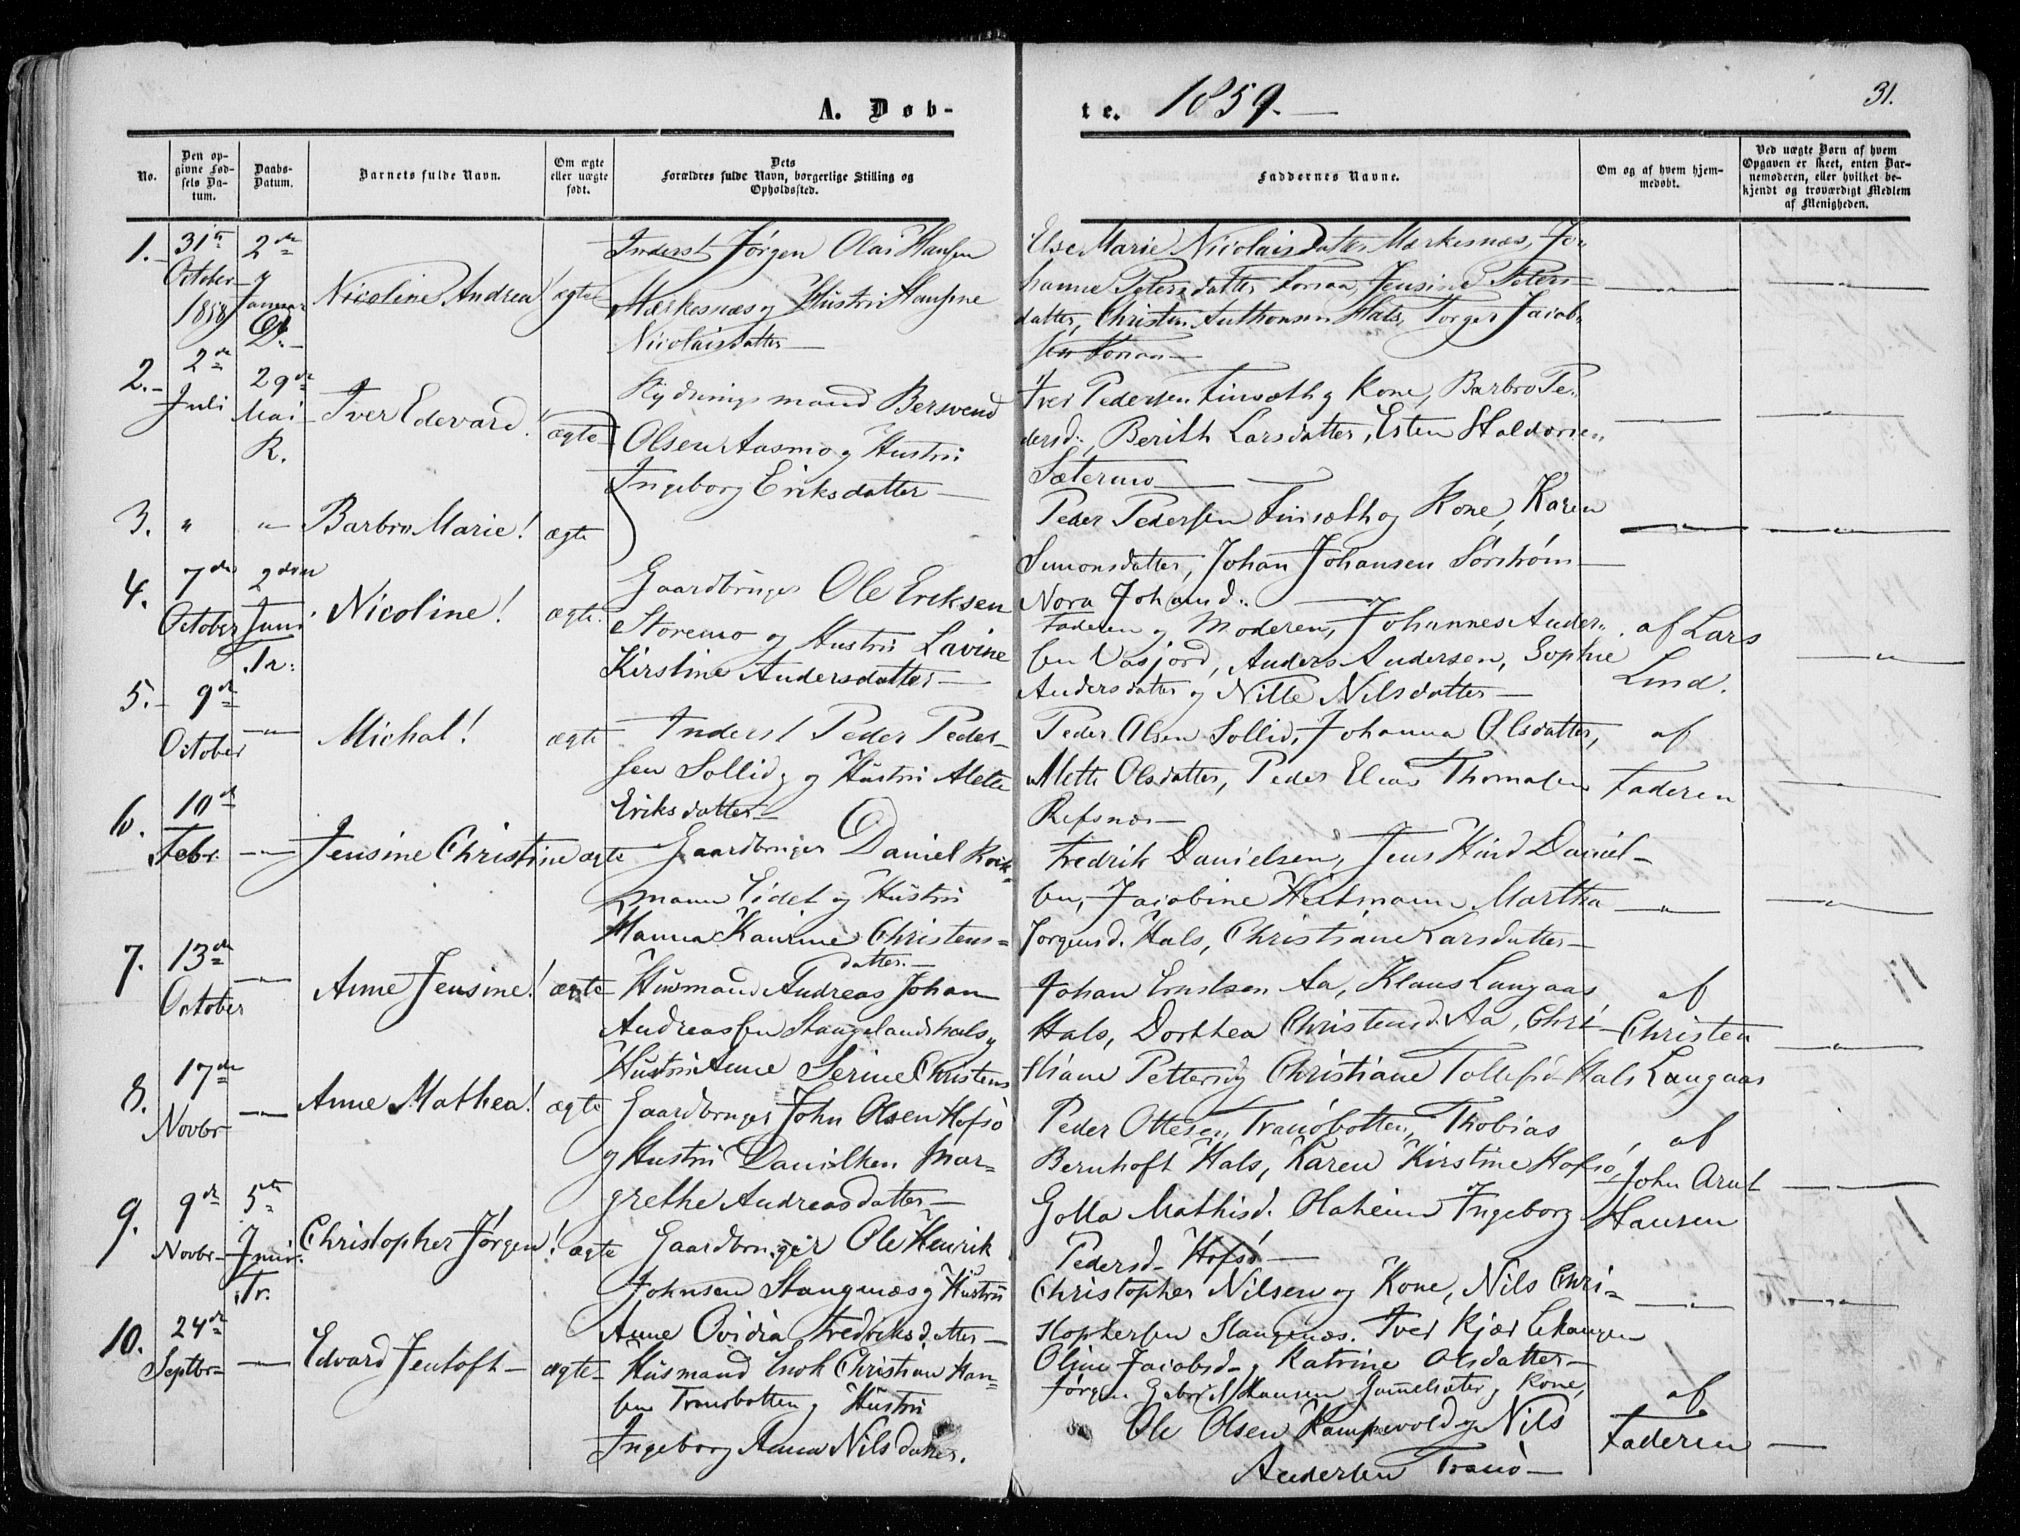 A. Døb-
te. 1859.
31.
No.
Den op-
givne Fød-
sels Da-
tum.
Daabs-
Datum.
Barnets fulde Navn.
Om ægte
eller uægte
født.
Dets
Forældres fulde Navn, borgerlige Stilling og
Opholdssted.
Faddernes Navne.
Om og af hvem hjem-
medøbt.
Ved uægte Børn af hvem
Opgaven er skeet, enten Bar-
nemoderen, eller hvilket be-
kjendt og troværdigt Medlem
af Menigheden.
1.
31te
October
1858
2den
Januar
Nicoline Andrea
ægte
Inderst Jørgen Olai Hansen
Mærkesnæs og Hustru Hansine
Nicolaisdatter
Else Marie Nicolaisdatter Mærkesnæs, Jo-
hanne Petersdatter Forsaa, Jensine Peters-
datter, Christen Anthonsen Hals, Torger Jacob-
sen Forsaa
2.
2de
Juli
29de
Mai
R.
Iver Edevard!
ægte
Rydningsmand Bersvend
Olsen Aasmo og Hustru
Ingeborg Eriksdatter
Iver Pedersen Finsæth og Kone, Barbro Pe-
dersd., Berith Larsdatter, Esten Haldorsen
Sætermo
3.
"
"
Barbro Marie!
ægte
Peder Pedersen Finsæth og Kone, Karen
Simonsdatter, Johan Johansen Sørstrøm
Nora Johansd.
4.
7de
October
2den
Juni
Tr.
Nicoline!
ægte.
Gaardbruger Ole Eriksen
Storemo og Hustru Lavine
Kirstine Andersdatter
Faderen og Moderen, Johannes Ander-
sen Vasjord, Anders Andersen, Sophie
Andersdatter og Nille Nilsdatter
af Lars
Lind.
5.
9de
October
Michal!
ægte
Inderst Peder Peder-
sen Sollid og Hustru Alette
Eriksdatter
Peder Olsen Sollid, Johanna Olsdatter,
Mette Olsdatter, Peder Elias Thomasen
Refsnæs
af
Faderen
6.
10de
Febr.
Jensine Christine
ægte
Gaardbruger Daniel
mann Eidet og Hustru
Hanna Christens-
datter
Fredrik Danielsen, Jens Hind Daniel-
sen, Jacobine Martha
Jørgensd. Hals, Christiane Larsdatter
7.
13de
October
Anne Jensine!
ægte
Husmand Andreas Johan
Andreassen Stangelandshals og
Hustru Anne Serine Christens
Johan Aa, Klaus Langaas
Hals, Dorthea Christensd. Aa, Chri-
stiane Petters og Christiane Tollefsd. Hals
af
Christen
Langaas
8.
17de
Novbr
Anne Mathea!
ægte
Gaardbruger John Olsen Hofsø
og Hustru Danilken Mar-
grethe Andreasdatter
Peder Ottesen Tranøbotten, Thobias
Bernhoft Hals, Karen Kirstine Hofsø,
Golla Mathisd. Olaheim Ingeborg
Pedersd. Hofsø
af
John Arnt
Hansen
9.
9de
Novbr
5te
Juni.
Tr.
Christopher Jørgen!
ægte
Gaardbruger Ole Henrik
Johnsen Stangnæs og Hustru
Anne Ovidia Fredriksdatter
Christopher Nilsen og Kone, Nils Chri-
stophersen Stangenæs. Iver Kjær
Oline Jacobsd. og Katrine Olsdatter
10.
24de
Septbr
Edvard Jentoft
ægte
Husmand Enok Christian Han-
sen Tranøbotten og Hustru
Ingeborg Anna Nilsdatter.
Jørgen Gabriel Hansen og Kone,
Ole Olsen Kampevold og Nils
Andersen Tranø
af
Faderen